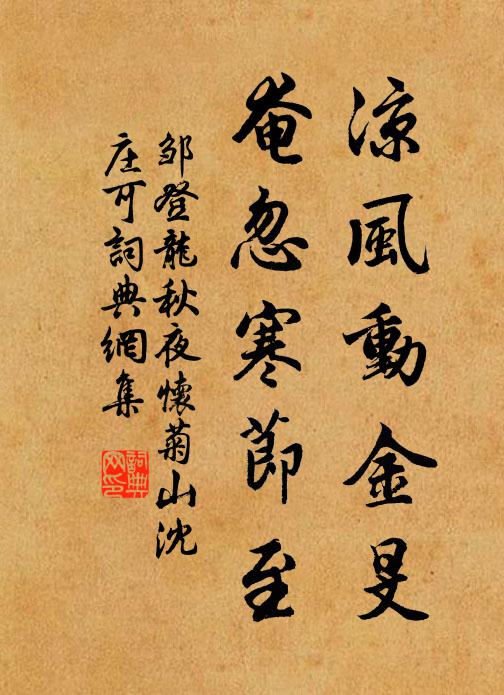 凉風動金旻
奄忽寒節至
邹登龍秋夜懷菊山沈
庄可詞典網集
詞典网印